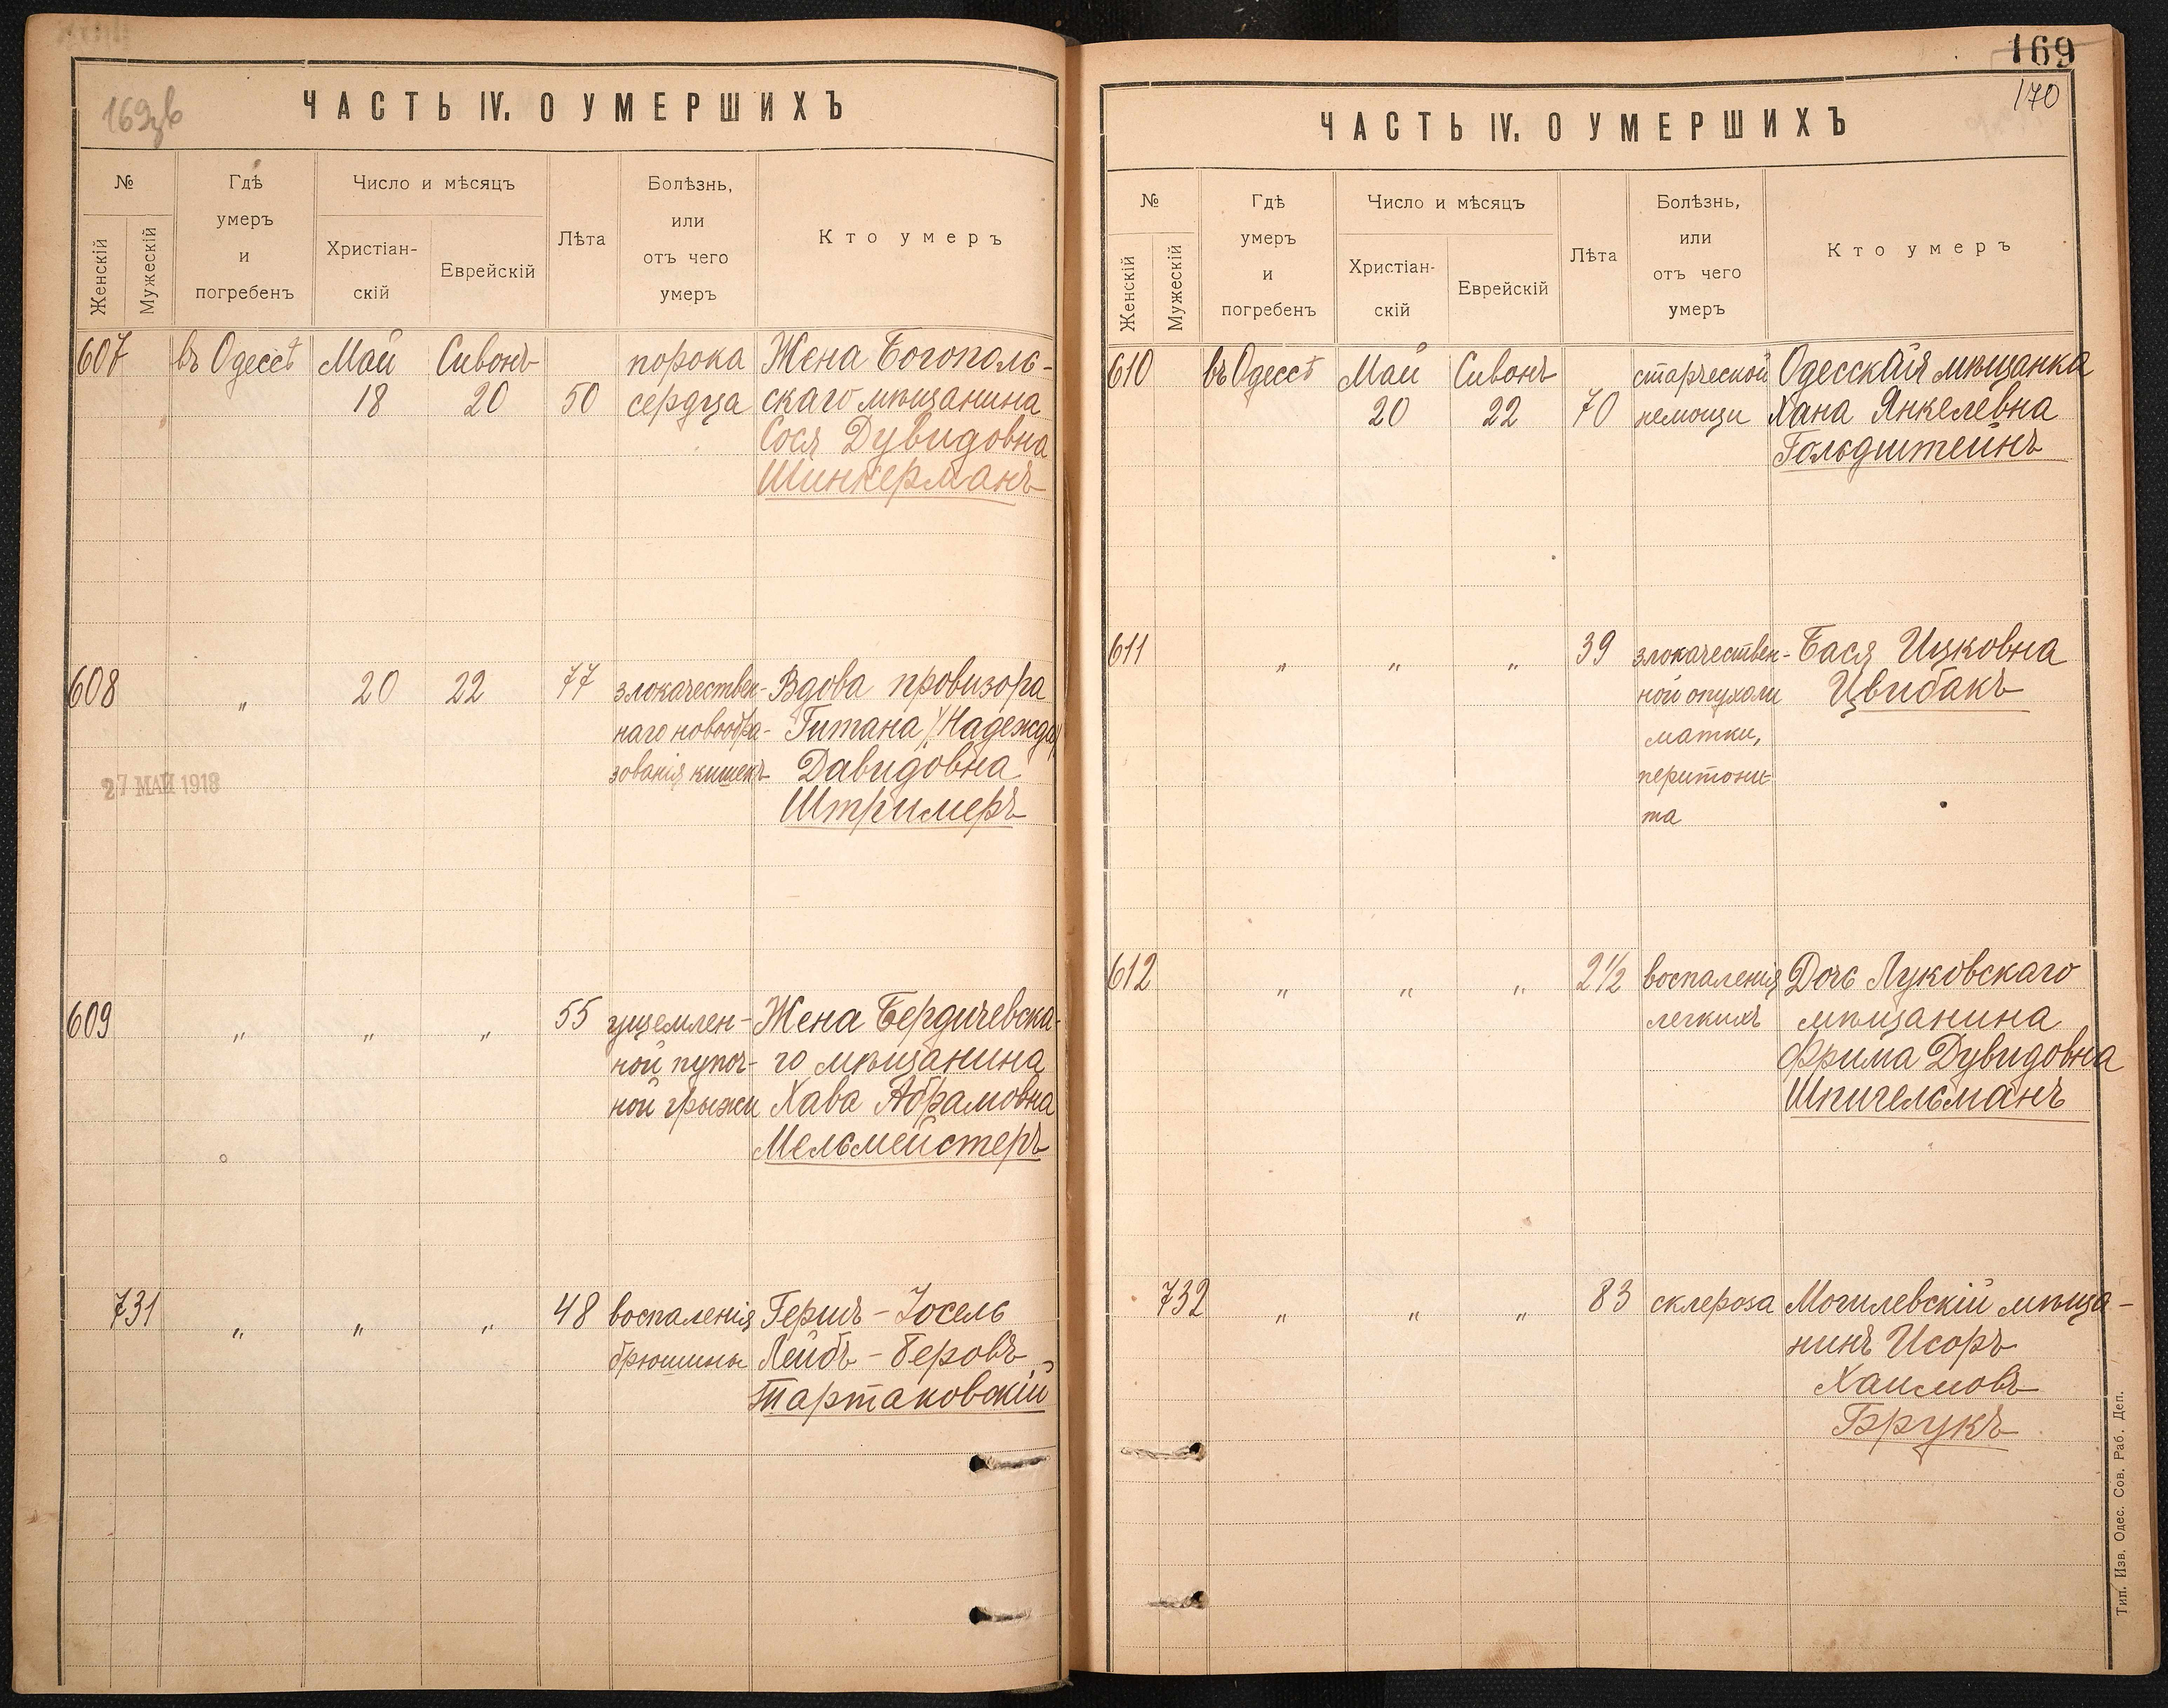 ЧАСТЬ IV. О УМЕРШИХЪ
№
Женскій
Мужескій
Гдѣ
умеръ
и
погребенъ
Число и мѣсяцъ
Христіан-
скій
Еврейскій
Лѣта
Болѣзнь,
или
отъ чего
умеръ
Кто умеръ
607 въ Одессѣ Май Сивонъ порока Жена Богополь-
18 20 50 сердца скаго мѣщанина
Сося Дувидовна
Шинкерманъ
608 „ 20 22 77 злокачествен- Вдова провизора
наго новообра- Гитана /Надежда/
зованія кишекъ Давидовна
27 МАЙ 1918
Штримеръ
609 „ „ „ 55 ущемлен- Жена Бердичевска-
ной пупоч- го мѣщанина
ной грыжи Хава Абрамовна
Мельмейстеръ
731 „ „ „ 48 воспаленія Гершъ-Іосель
брюшины Лейбъ-Беровъ
Тартаковскій
169
170
ЧАСТЬ IV. О УМЕРШИХЪ
№
Женскій
Мужескій
Гдѣ
умеръ
и
погребенъ
Число и мѣсяцъ
Христіан-
скій
Еврейскій
Лѣта
Болѣзнь,
или
отъ чего
умеръ
Кто умеръ
610 въ Одессѣ Май Сивонъ старческой Одесская мѣщанка
20 22 70 немощи Хана Янкелевна
Гольдштейнъ
611 „ „ „ 39 злокачествен- Бася Ицковна
ной опухоли Цвибакъ
матки,
перитони-
та
612 „ „ „ 2½ воспаленія Дочь Луковскаго
легкихъ мѣщанина
Фрима Дувидовна
Шпигельманъ
732 „ „ „ 83 склероза Могилевскій мѣща-
нинъ Исоръ
Хаимовъ
Брукъ
Тип. Изв. Одес. Сов. Раб. Деп.